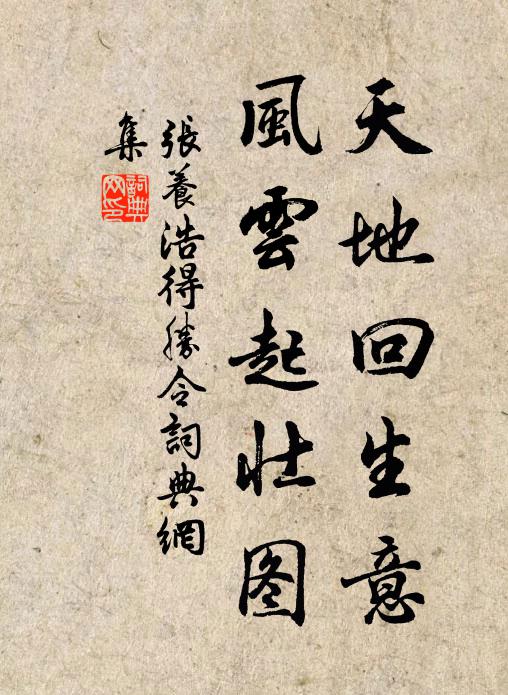 天地回生意
風雲起壯图
張養浩得勝令詞典網
集
詞典
网印